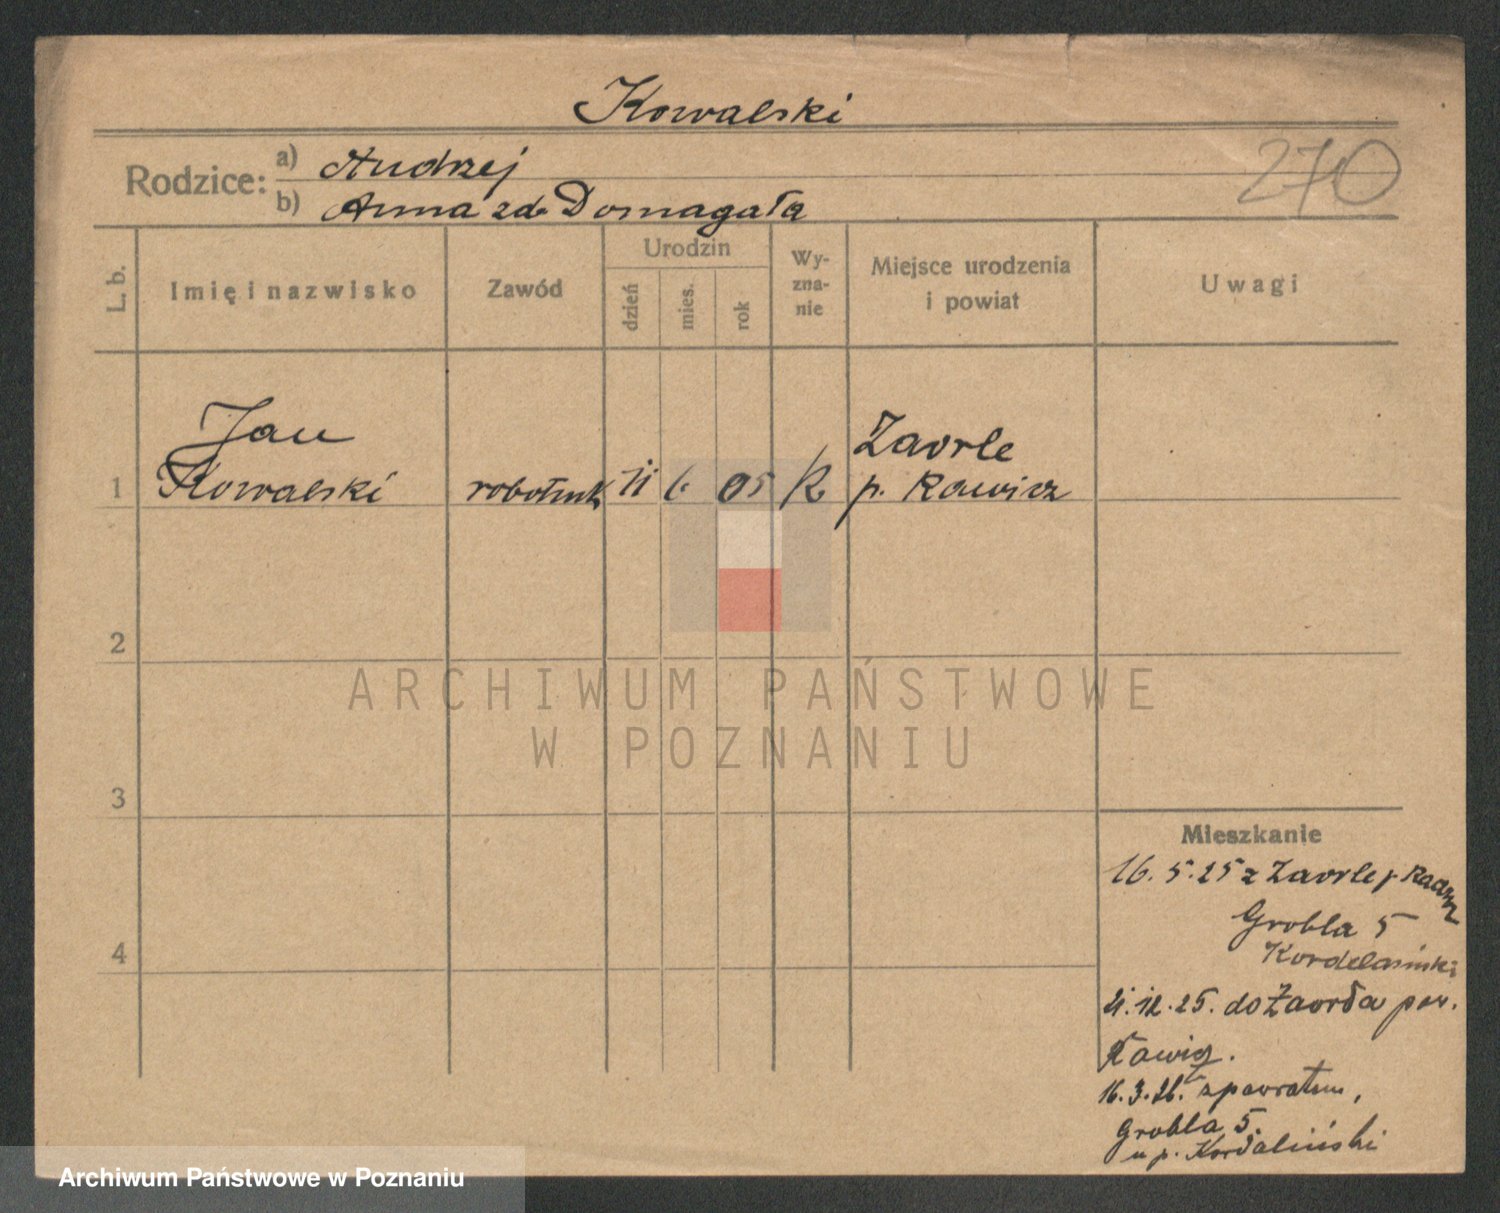 Kowalski
Rodzice: a) Andrzej
b) Anna zd. Domagała
270
L. b.
Imię i nazwisko
Zawód
Urodzin
dzień
mies.
rok
Wy-
zna-
nie
Miejsce urodzenia
i powiat
Uwagi
Jan
1 Kowalski robotnik 11 6 05 R
Zaorle
p. Rawicz
2
3
4
ARCHIWUM PAŃSTWOWE
W POZNANIU
Mieszkanie
16. 5. 25 z Zaorle p
Grobla 5
12. 25. do Zaorla pow.
Rawicz.
16. 3. 26. zpowrotem,
Grobla 5.
u p. Kordaliński
Archiwum Państwowe w Poznaniu